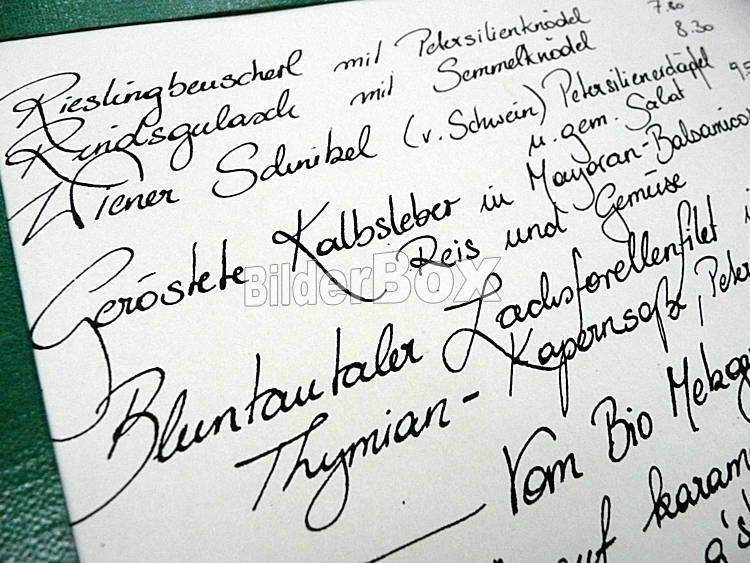 Rieslingbeuscherl mit Petersilienknödel 7.80
Rindsgulasch mit Semmelknödel 8.30
Wiener Schnitzel (v. Schwein) Petersilienerdäpfel
u. gem. Salat
Geröstete Kalbsleber in Mayoran-Balsamico
Reis und Gemüse
BilderBox
Bluntautaler Lachsforellenfilet
Thymian-Kapernsoße, Peter
Vom Bio Metzge
auf karam